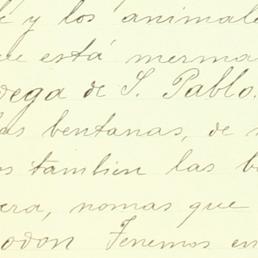 y los animale
está merma
dega de S. Pablo.
las bentanas, de
os tambien las b
era, nomas que
odon Tenemos en